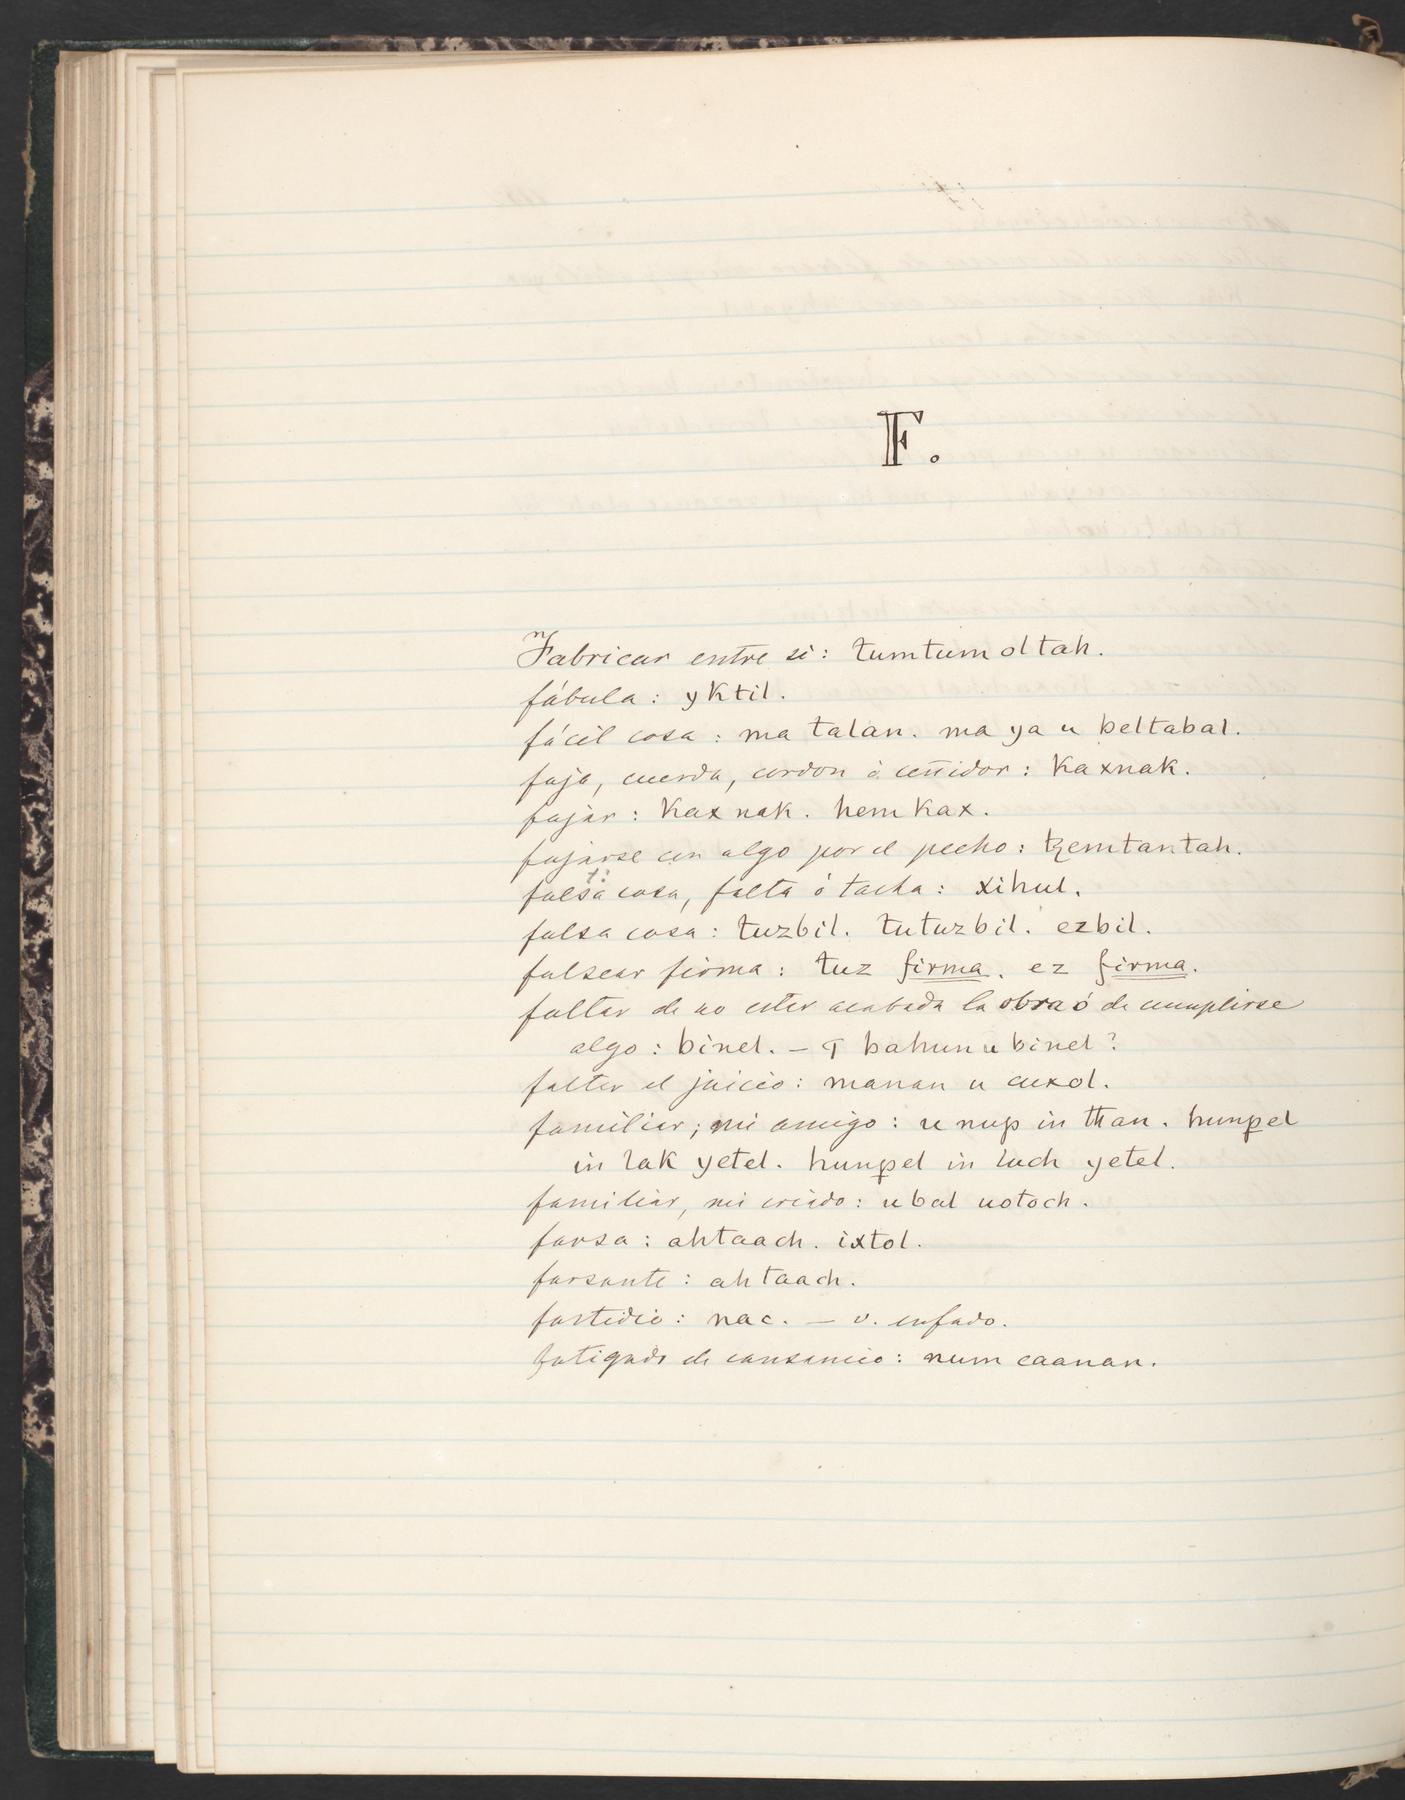 F.
Fabricar entre si: tumtum ol tah.
fábula: yktil.
fácil cosa: ma talan. ma ya u beltabal.
faja, cuerda, cordon ò ceñidor: kaxnak.
fajar: kaxnak. hem kax.
fajarse con algo por el pecho: tzemtantah.
falsa cosa, falta ó tacha: xihul.
falsa cosa: tuzbil. tutuzbil. ezbil.
falsear firma: tuz firma. ez firma.
faltar de no estar acabada la obra ó de cumplirse
algo: binel. – ꟼ bahun u binel?
faltar el juicio: manan u cuxol.
familiar; mi amigo: u nup in tħan. hunꝑel
in lak yetel. hunꝑel in luch yetel.
familiar, mi criado: u bal uotoch.
farsa: ahtaach. ixtol.
farsante: ah taach.
fastidio: nac. – v. enfado.
fatigado de cansancio: num caanan.